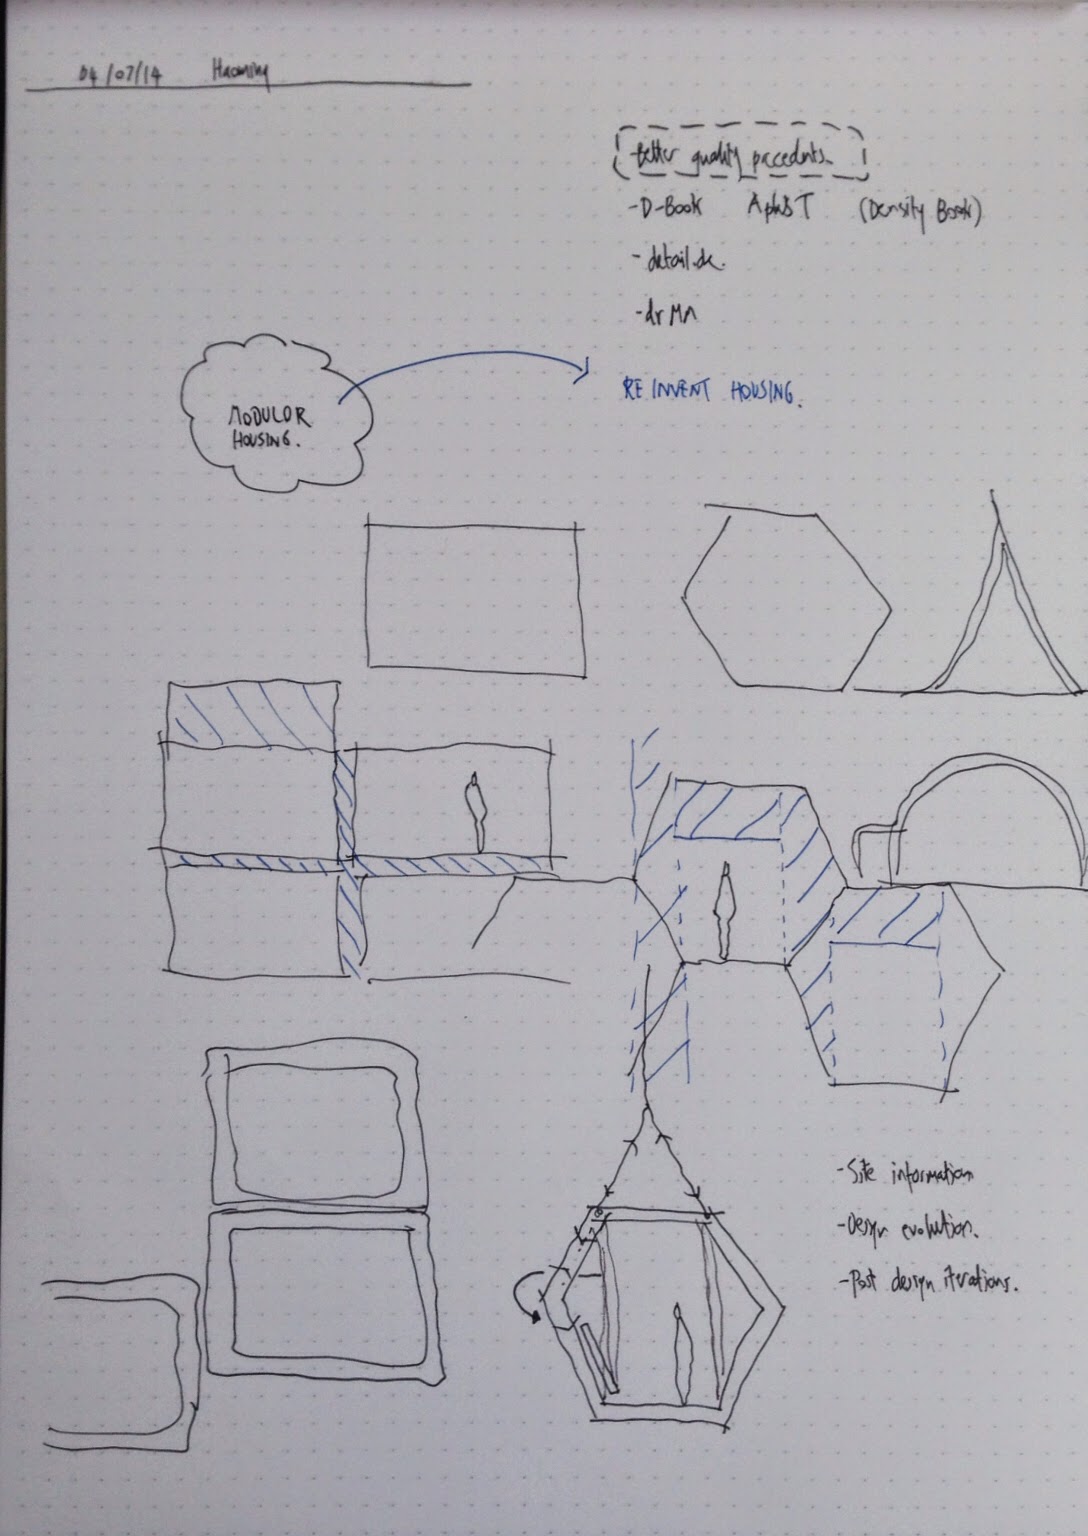 04/07/14 Haoming
-Better quality precedents.
-D-Book A+T (Density Book)
-detail.de.
REINVENT HOUSING.
MODULOR
HOUSING.
-Site information
-Design evolution.
-Post design iterations.